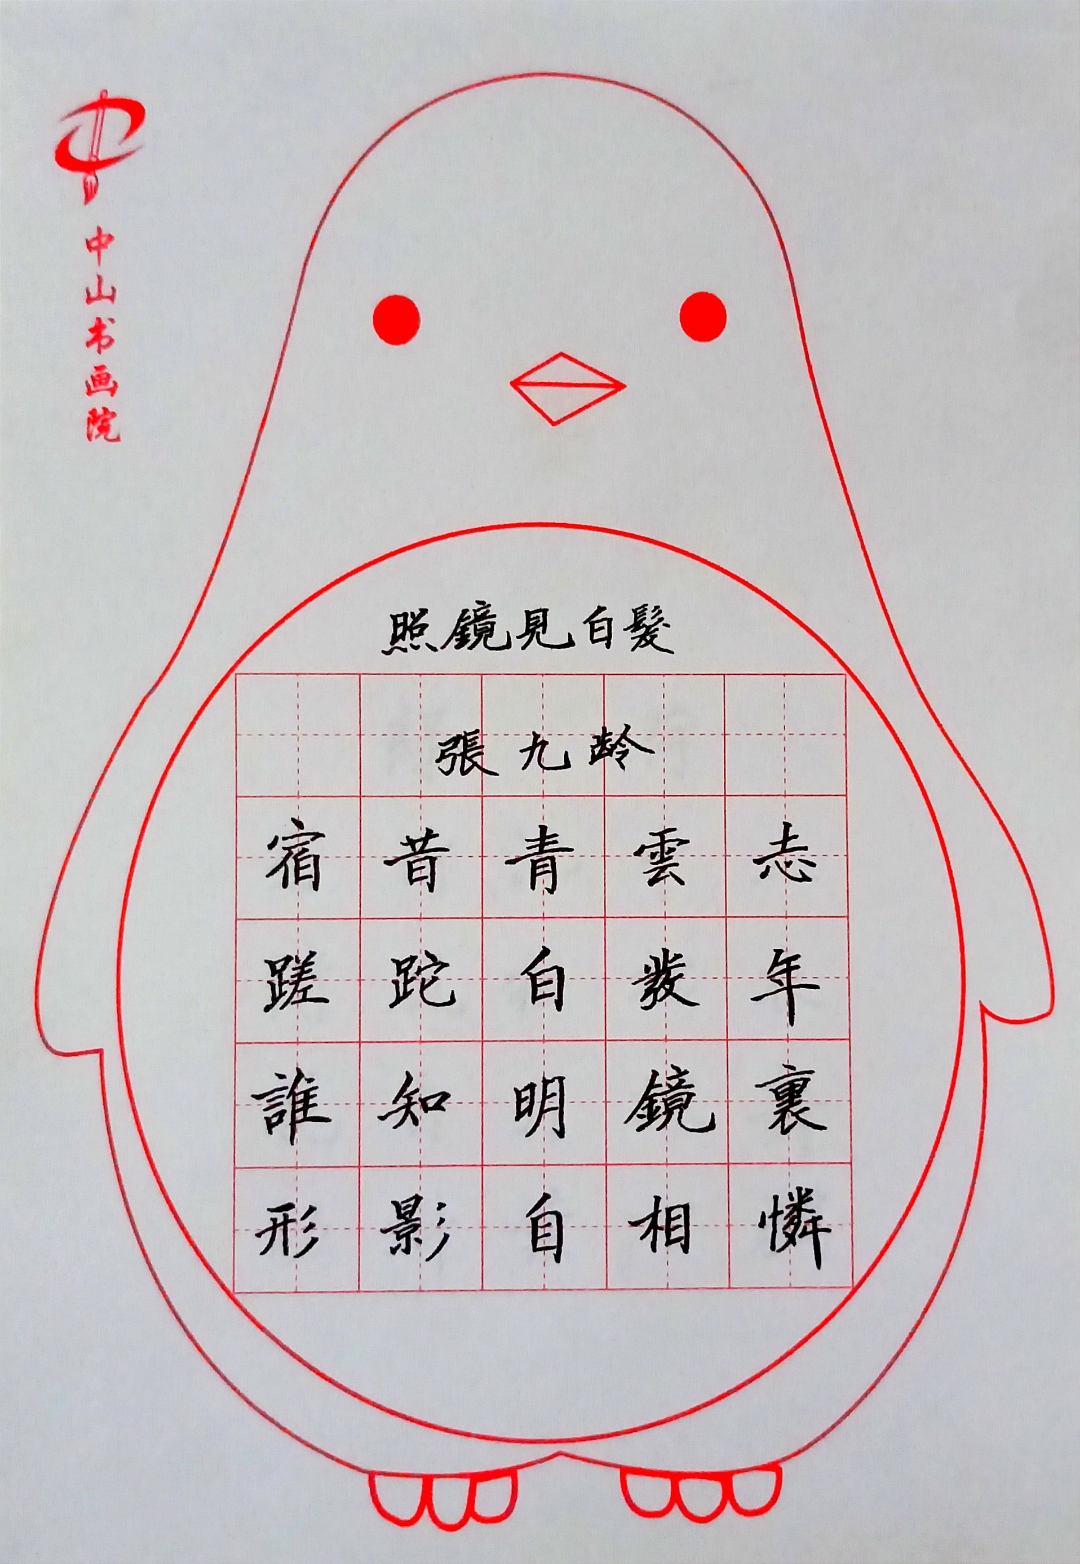 中山书画院
照鏡見白髮
張九龄
宿昔青雲志
蹉跎白发年
誰知明鏡裏
形影自相憐